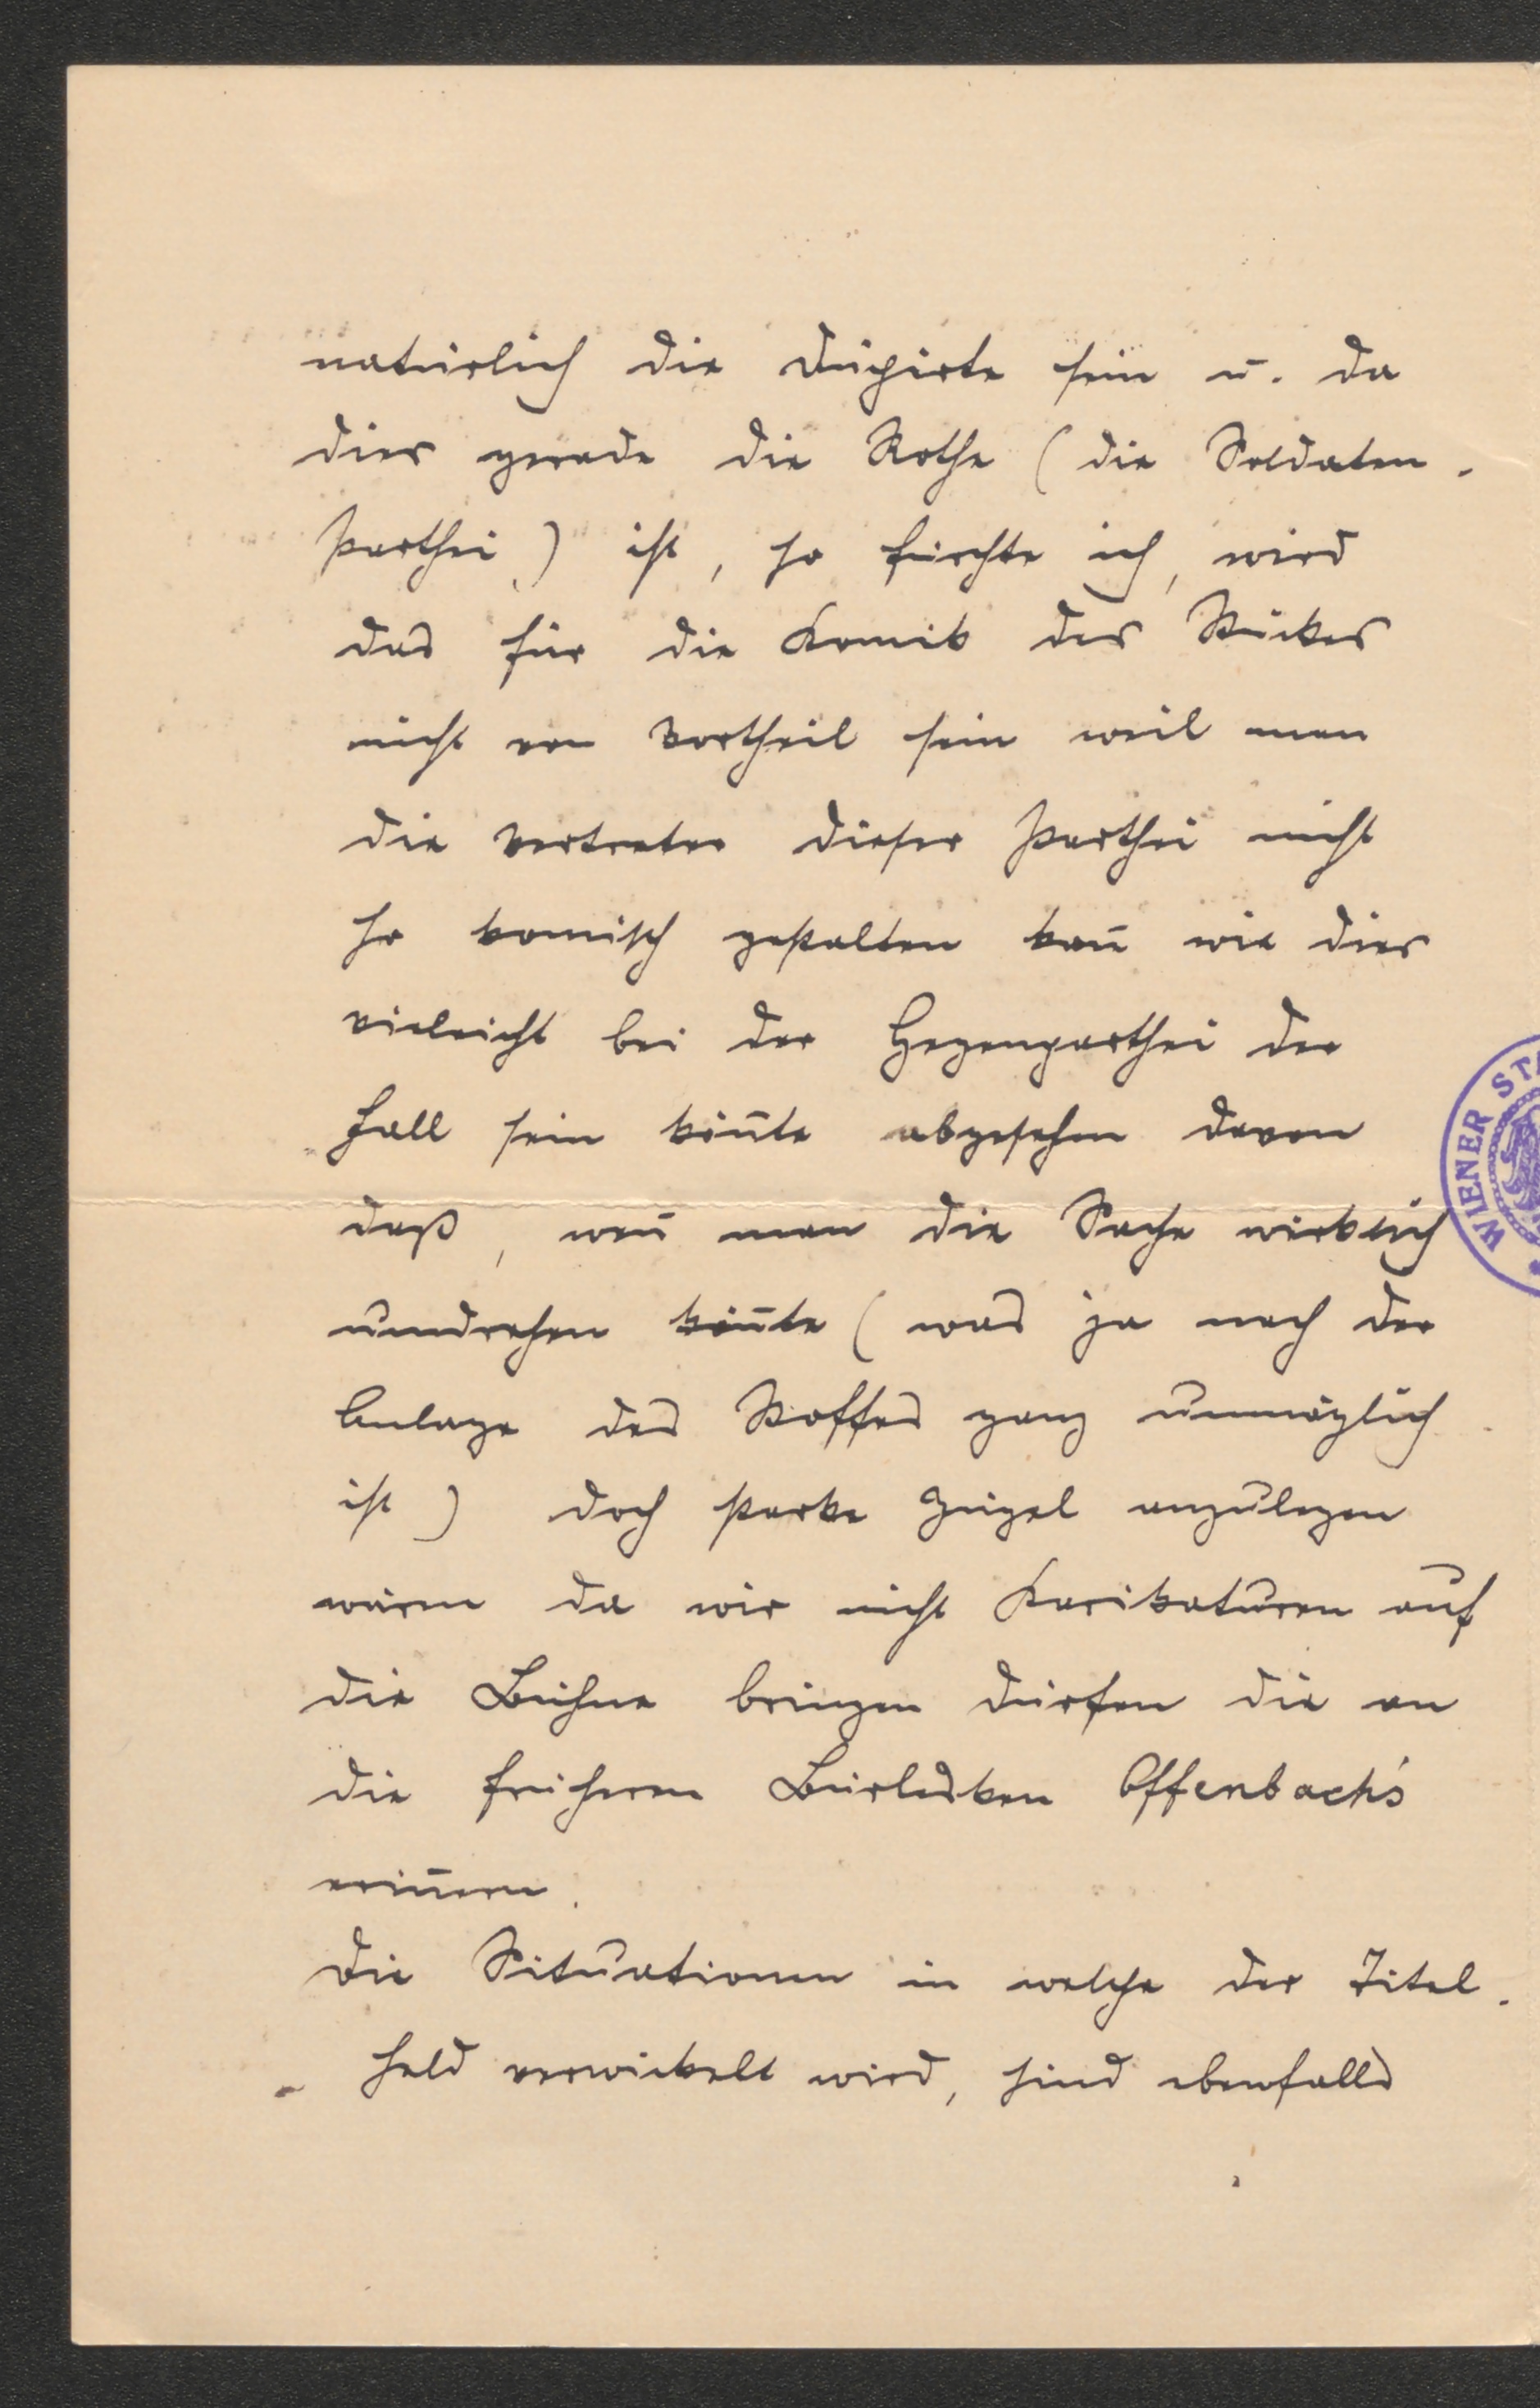 natürlich die Düpirte sein u. da
dies gerade die Rothe (die Soldaten-
Parthei) ist, so fürchte ich, wird
das für die Komik des Stückes
nicht von Vortheil sein weil man
die Vertreter dieser Parthei nicht
so komisch gestalten kan̄ wie dies
vieleicht bei der Gegenparthei der
Fall sein kön̄te abgesehen davon
daß, wen̄ man die Sache wirklich
umdrehen kön̄te (was ja nach der
Anlage des Stoffes ganz unmöglich
ist) doch starke Zügel anzulegen
wären da wir nicht Karikaturen auf
die Bühne bringen dürfen die an
die früheren Burlesken Offenbach's
erin̄ern.
Die Situationen in welche der Titel-
held verwickelt wird, sind ebenfalls
WIENER STA